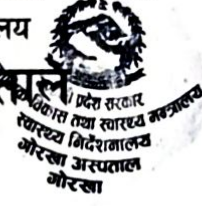 लय
प्रदेश सरकार
विकास तथा स्वास्थ्य मन्त्रालय
स्वास्थ्य निर्देशनालय
गोरखा अस्पताल
गोरखा